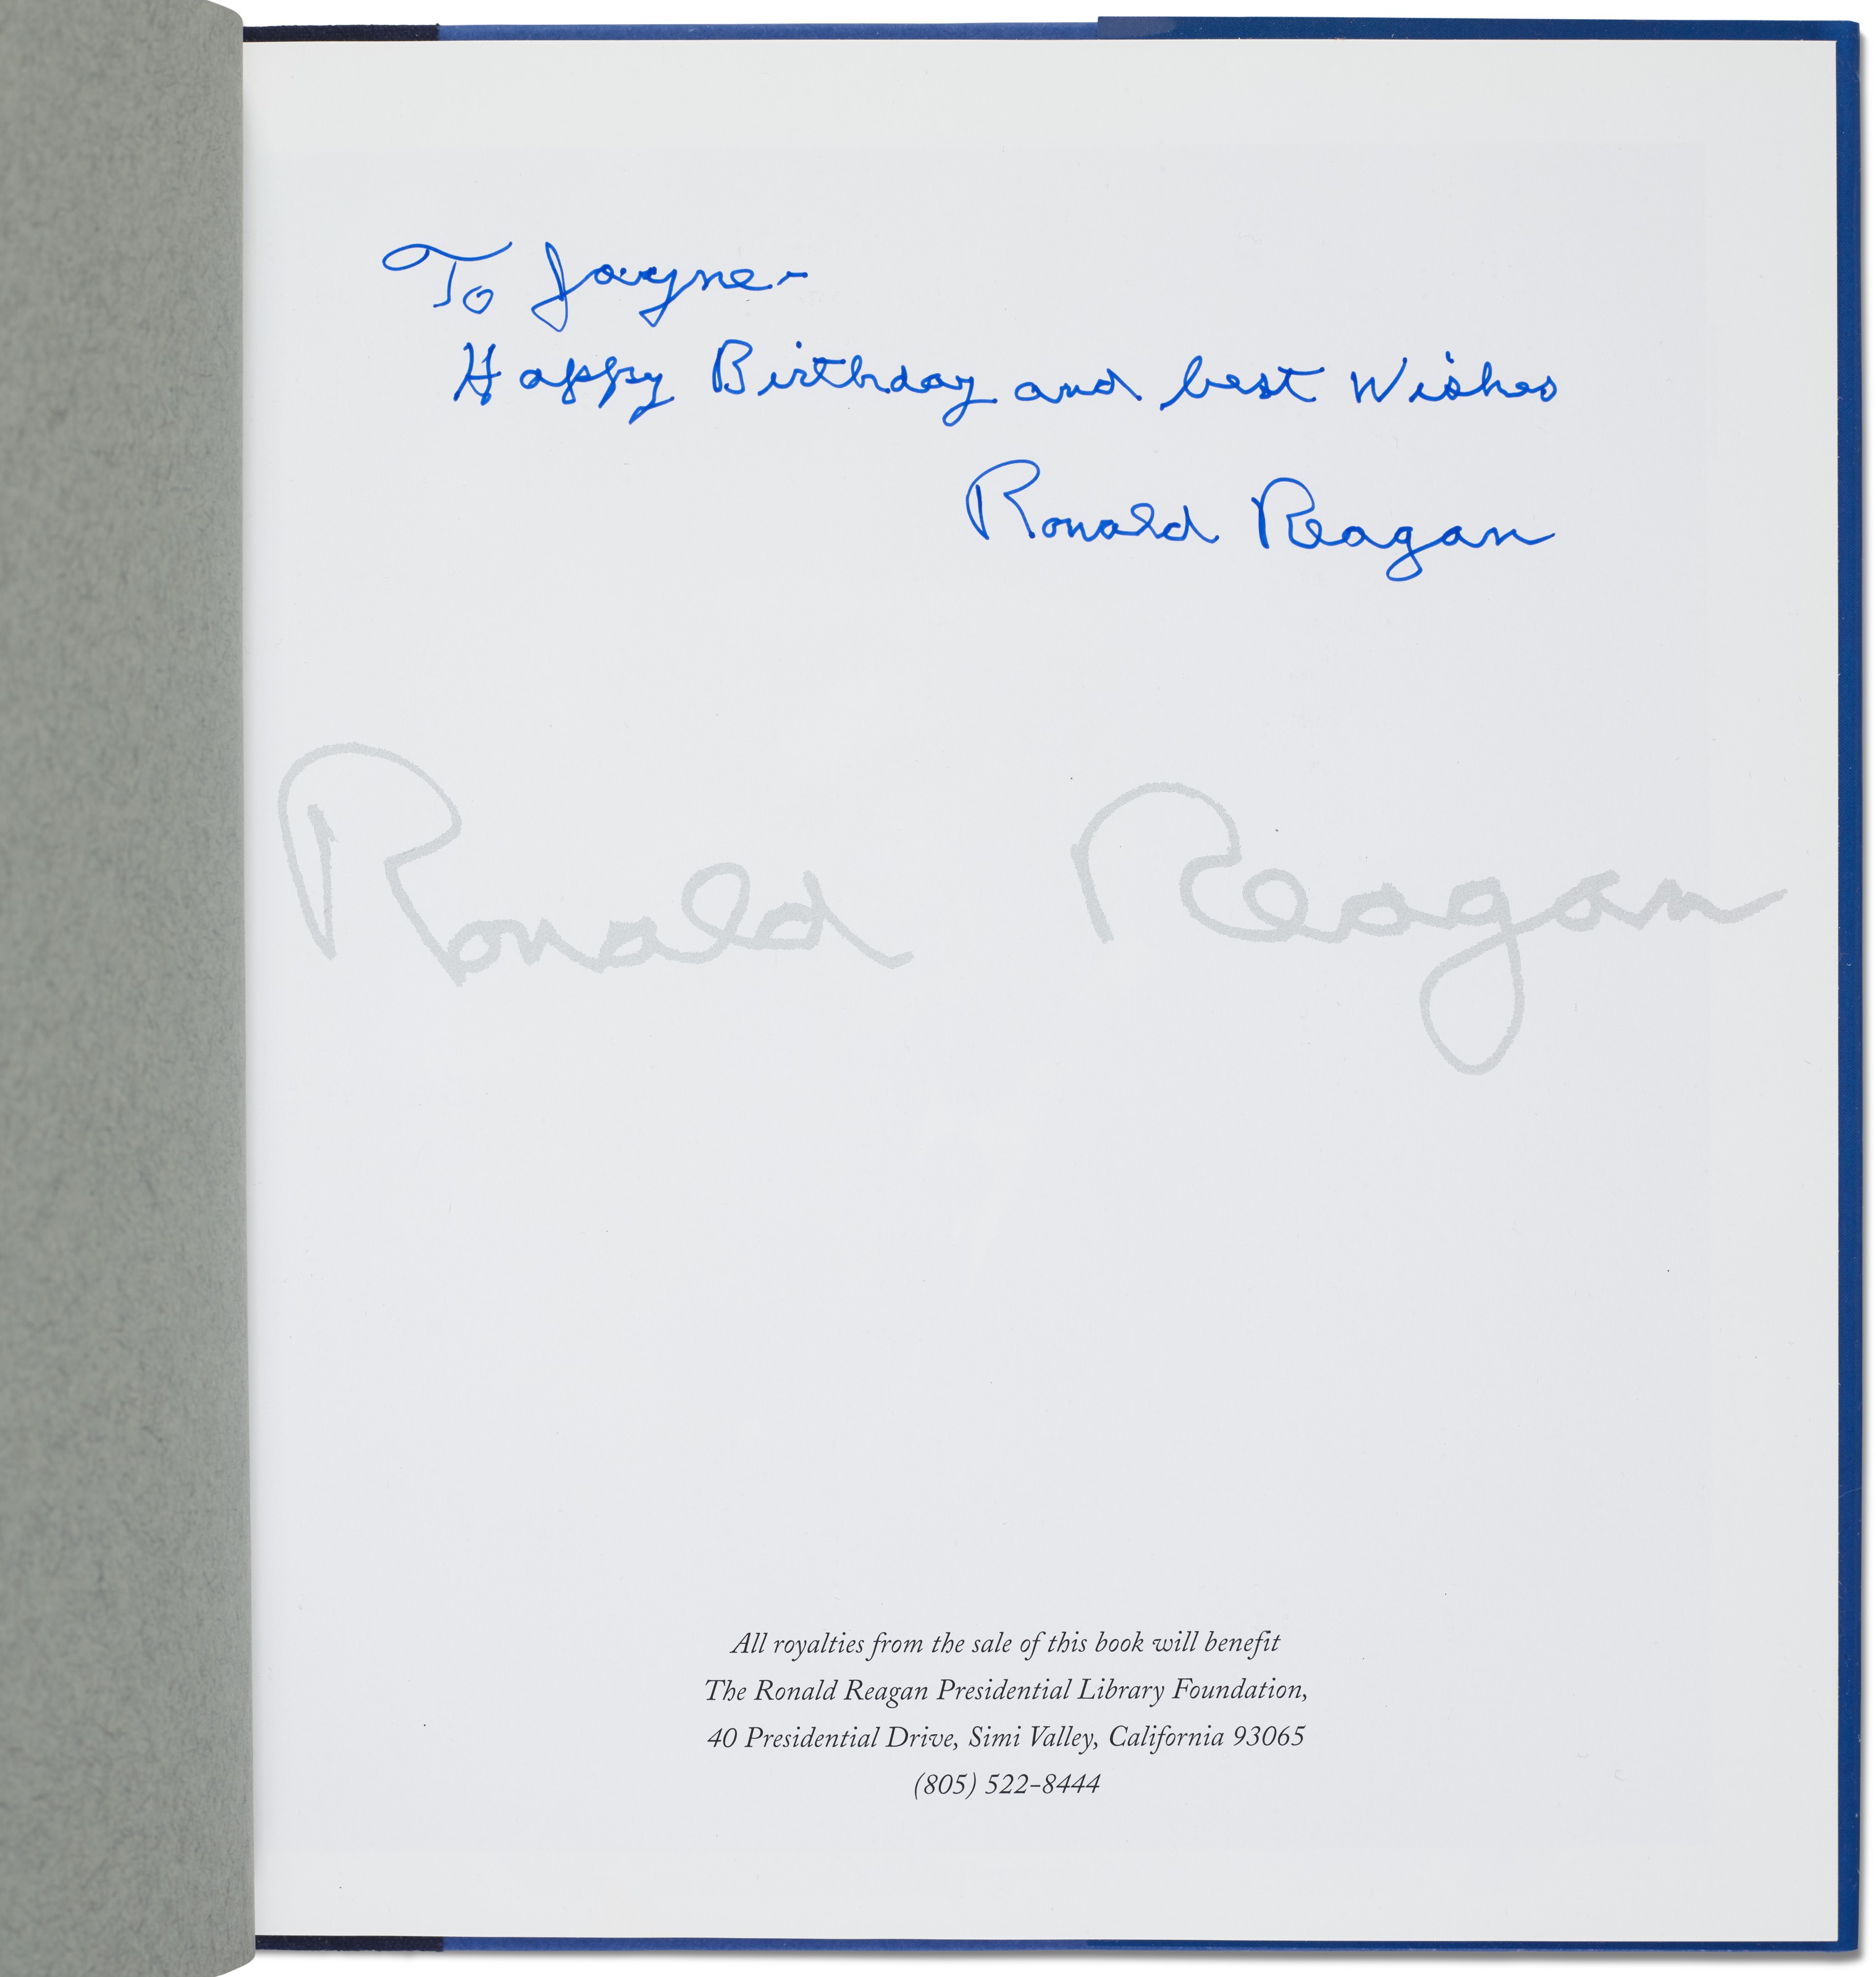 To Jayne-
Happy Birthday and best Wishes
Ronald Reagan
Ronald Reagan
All royalties from the sale of this book will benefit
The Ronald Reagan Presidential Library Foundation,
40 Presidential Drive, Simi Valley, California 93065
(805) 522-8444